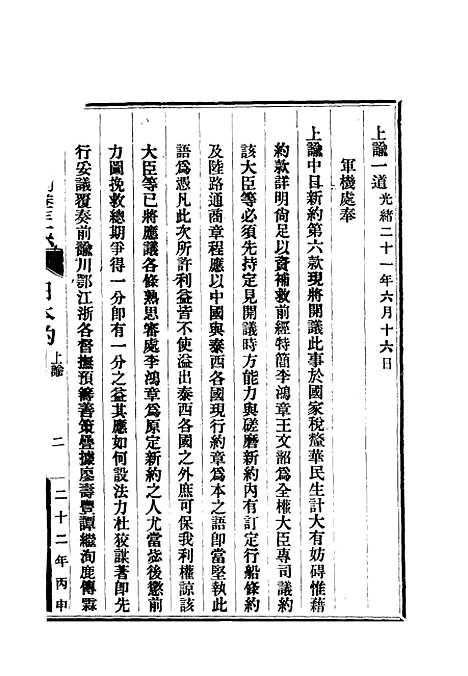 上諭一道光緒二十一年六月十六日
軍機處奉
上諭中日新約第六款現將開議此事於國家稅釐華民生計大有妨碍惟藉
約款詳明尙足以資補救前經特簡李鴻章王文韶為全權大臣專司議約
該大臣等必須先持定見開議時方能力與磋磨新約內有訂定行船條約
及陸路通商章程應以中國與泰西各國現行約章為本之語卽當堅執此
語為憑凡此次所許利益皆不使溢出泰西各國之外庶可保我利權諒該
大臣等已將應議各條熟思審處李鴻章為原定新約之人尤當懲後懲前
力圖挽救總期爭得一分卽有一分之益其應如何設法力杜狡謀著卽先
行妥議覆奏前諭川鄂江浙各督撫預籌善策疊據廖壽豐譚繼洵鹿傳霖
日本約
上諭
二
二十二年丙申